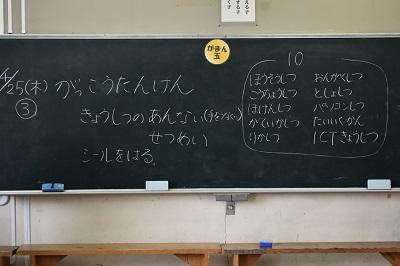 がまん
玉
4/25(木) がっこうたんけん
③
きょうしつのあんない(手をつないで)
せつめい
シールをはる。
10
ほうそうしつ おんがくしつ
こうちょうしつ としょしつ
ほけんしつ パソコンしつ
かていかしつ たいいくかん
りかしつ ICTきょうしつ